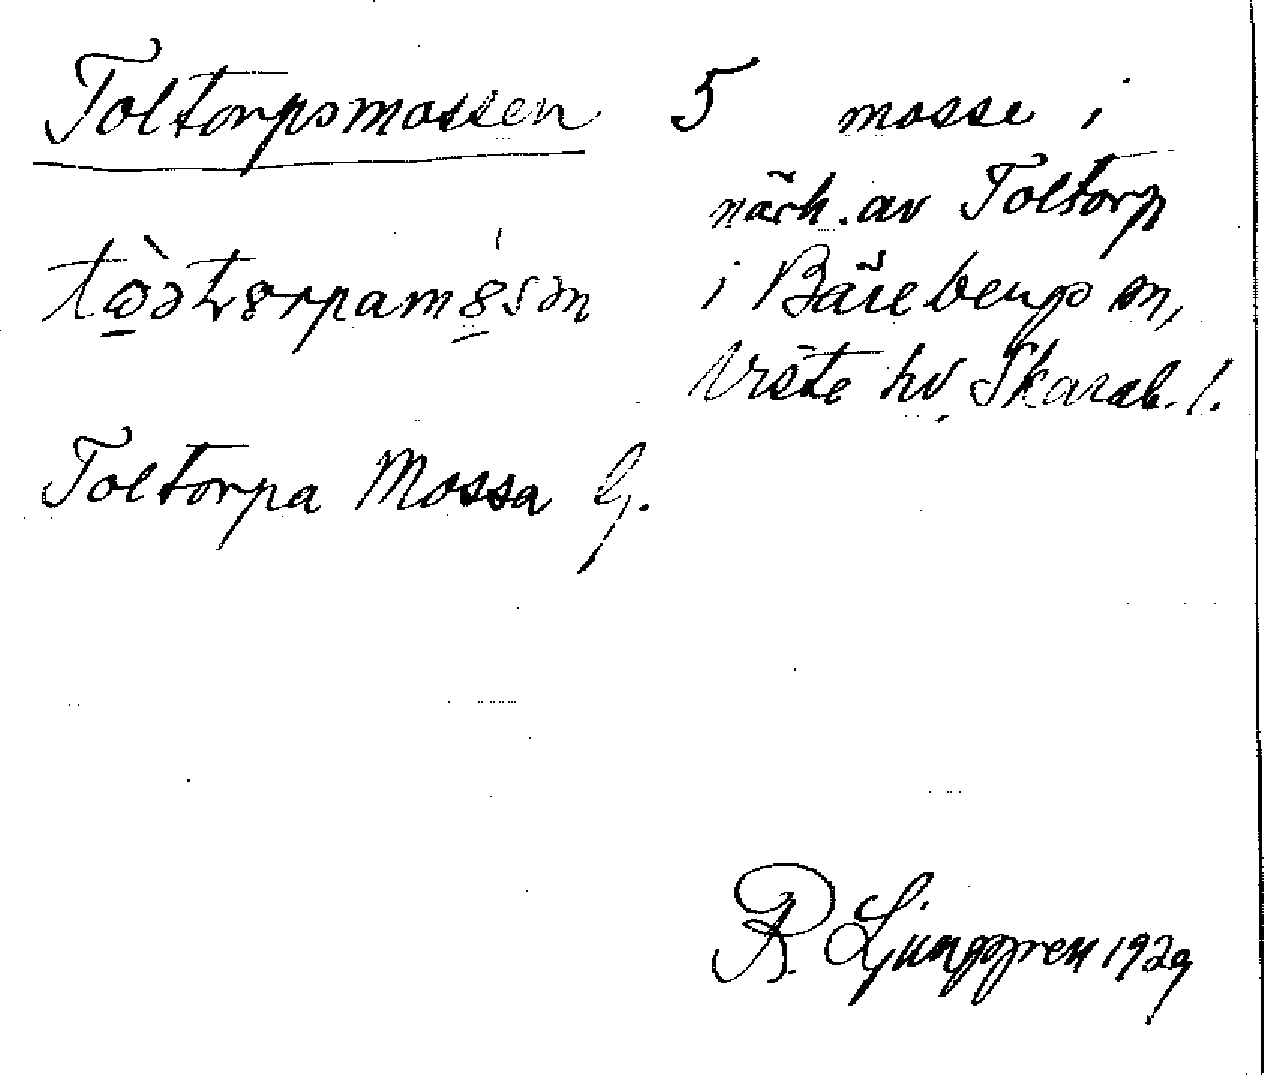 Toltorpsmossen 5 mosse i
närh. av Toltorp
i Bärebergs sn,
Viste hd Skarab. l.
Toltorpa Mossa
R Ljunggren 1929